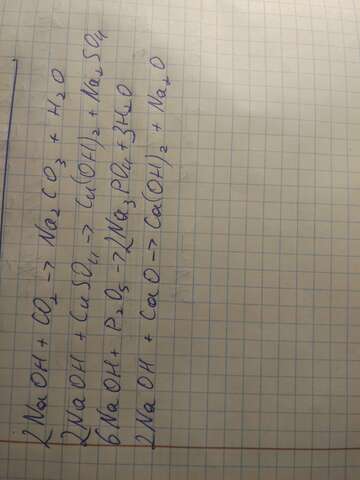 2NaOH + CO₂ → Na₂CO₃ + H₂O
2NaOH + CuSO₄ → Cu(OH)₂ + Na₂SO₄
6NaOH + P₂O₅ → 2Na₃PO₄ + 3H₂O
2NaOH + CaO → Ca(OH)₂ + Na₂O